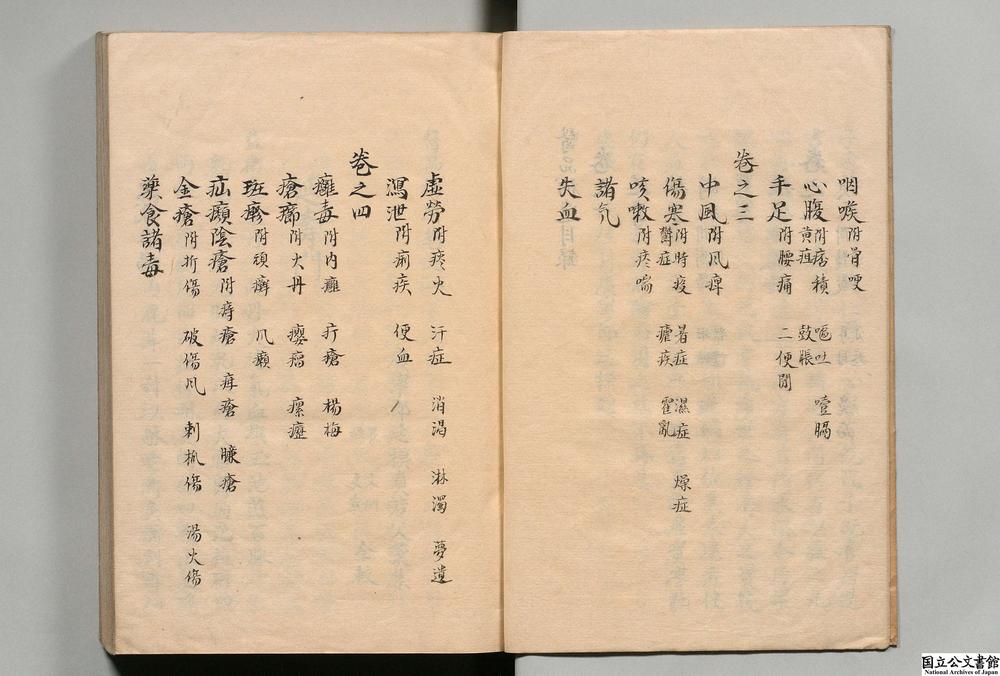 咽喉 附骨哽
心腹 附痞積 嘔吐 噎膈 黄疸 鼓脹
手足 附腰痛 二便閉
卷之三
中風 附風痺
傷寒 附時疫 暑症 濕症 燥症 欝症 瘧疾 霍亂
咳嗽 附痰喘
諸氣
失血
虛勞 附痰火 汗症 消渴 淋濁 夢遺
瀉泄 附痢疾 便血
卷之四
癰毒 附内癰 疔瘡 楊梅
瘡癤 附火丹 癭瘤 瘰癧
斑疹 附頑癬 風癩
疝㿗陰瘡 附痔瘡 毒瘡 臁瘡
金瘡 附折傷 破傷風 刺抓傷 湯火傷
藥食諸毒
国立公文書館
National Archives of Japan